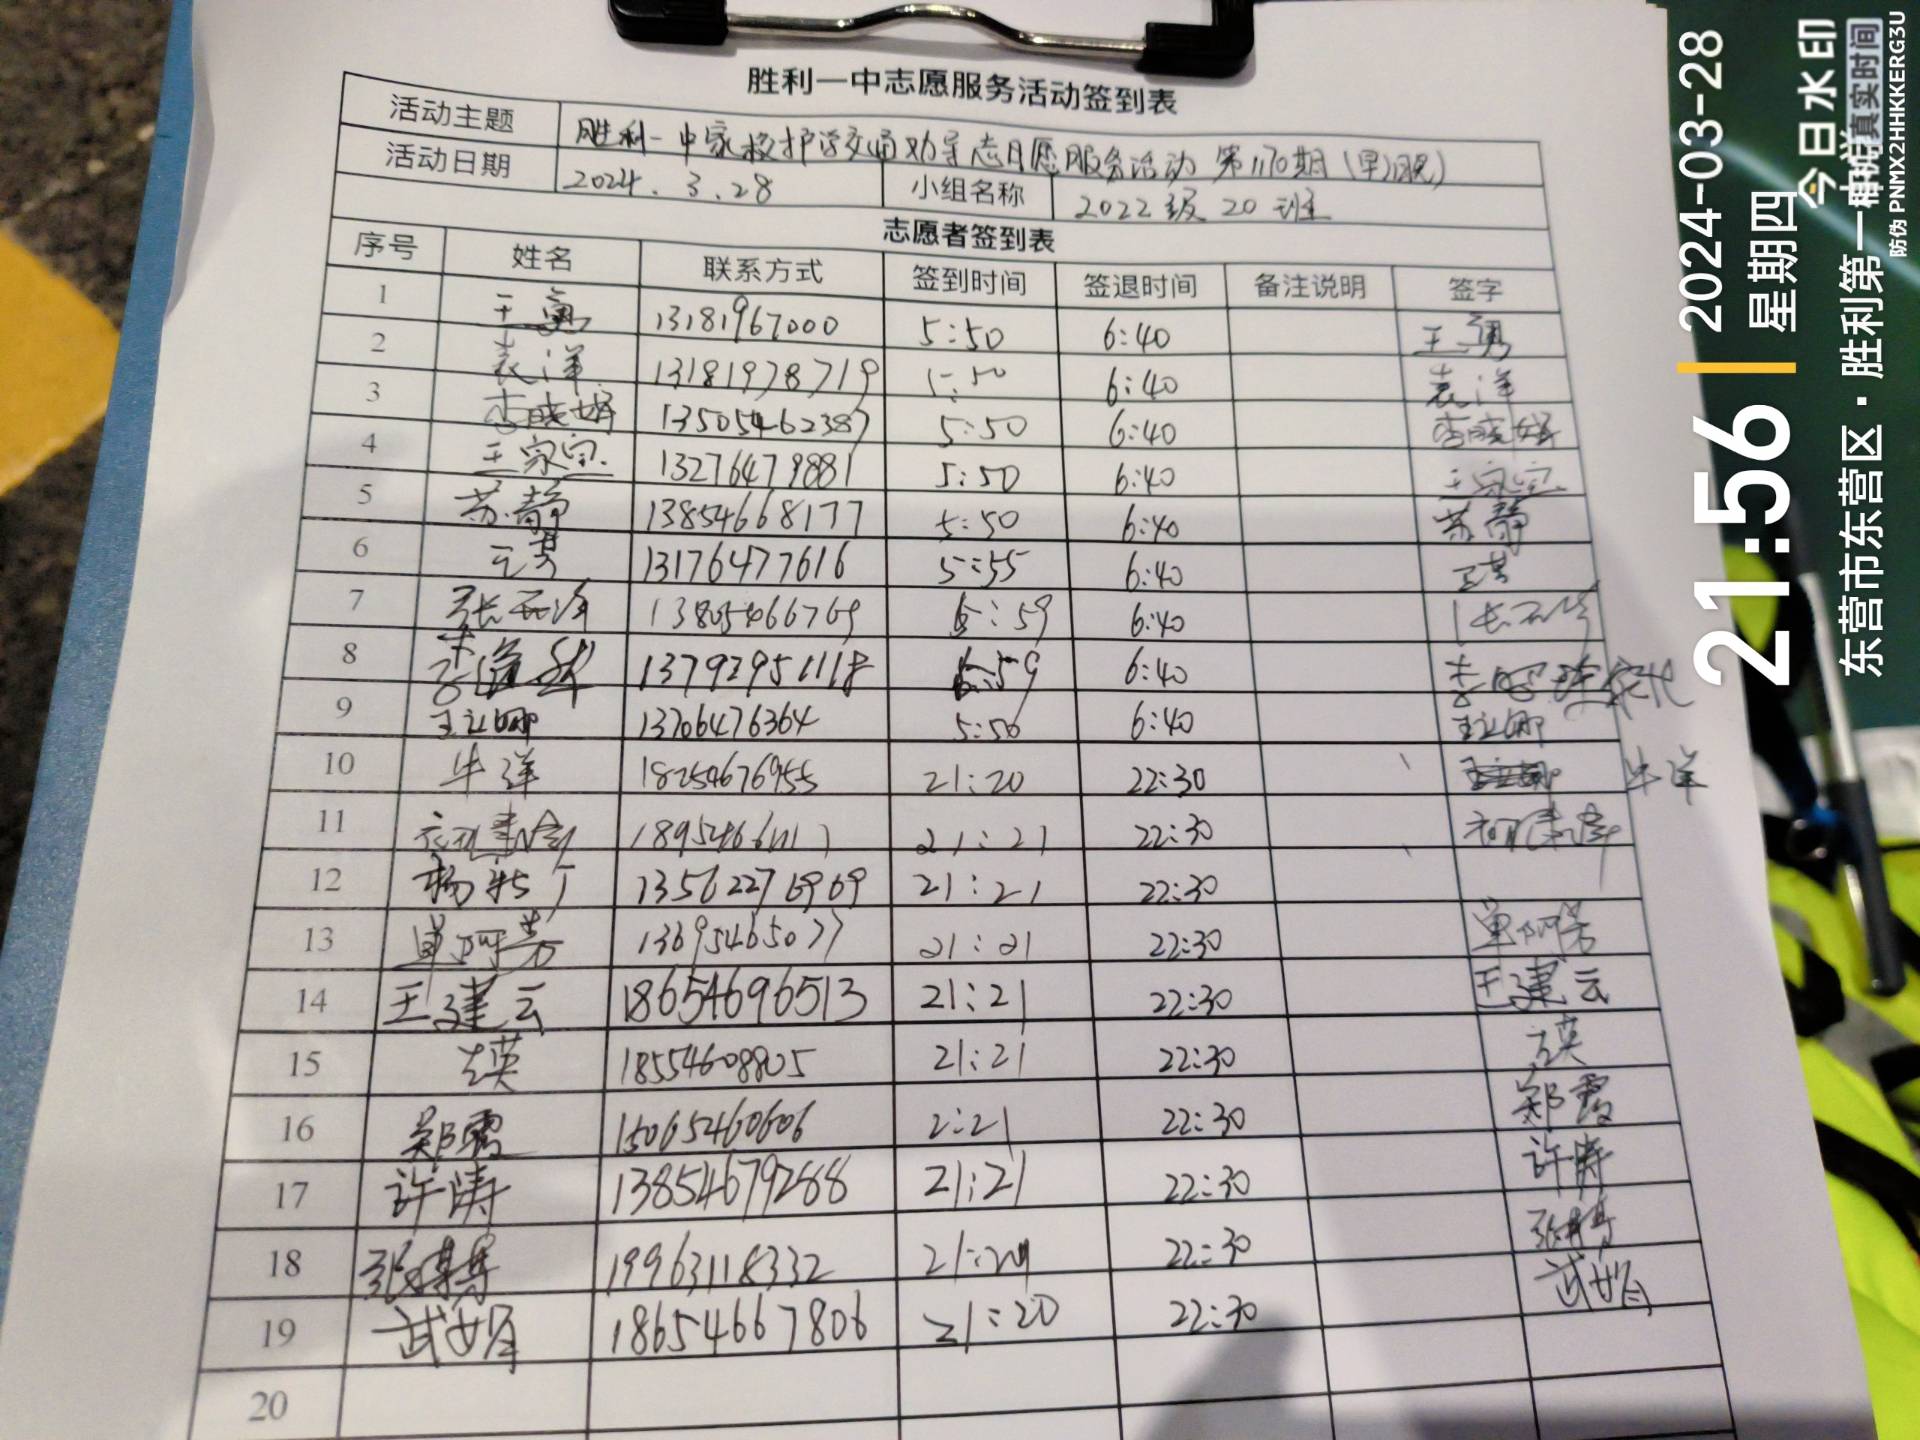 胜利一中志愿服务活动签到表
活动主题 胜利一中家校护学交通劝导志愿服务活动 第1170期(早)(晚)
活动日期 2024.3.28 小组名称 2022级20班
志愿者签到表
序号 姓名 联系方式 签到时间 签退时间 备注说明 签字
1 王勇 13181967000 5:50 6:40 王勇
2 袁洋 13181978719 5:50 6:40 袁洋
3 李晓娟 13505462387 5:50 6:40 李晓娟
4 王家宝 13276479881 5:50 6:40 王家宝
5 苏静 13854668177 5:50 6:40 苏静
6 13176477616 5:55 6:40
7 13805466769 5:59 6:40
8 13792951118 5:59 6:40
9 王立娜 13706476364 5:50 6:40 王立娜
10 牛洋 18254676955 21:20 22:30 牛洋
11 21:21 22:30
12 13562276969 21:21 22:30
13 单阿芳 13695465077 21:21 22:30 单阿芳
14 王建云 18654696513 21:21 22:30 王建云
15 18554608805 21:21 22:30
16 郑霞 15065460606 2:21 22:30 郑霞
17 许涛 13854679288 21:21 22:30 许涛
18 19963118332 22:30
19 武娟 18654667806 21:20 22:30 武娟
20
21:56
2024-03-28
星期四
东营市东营区·胜利第一中学
今日水印
相机真实时间
防伪 PNMX2HHKKERG3U